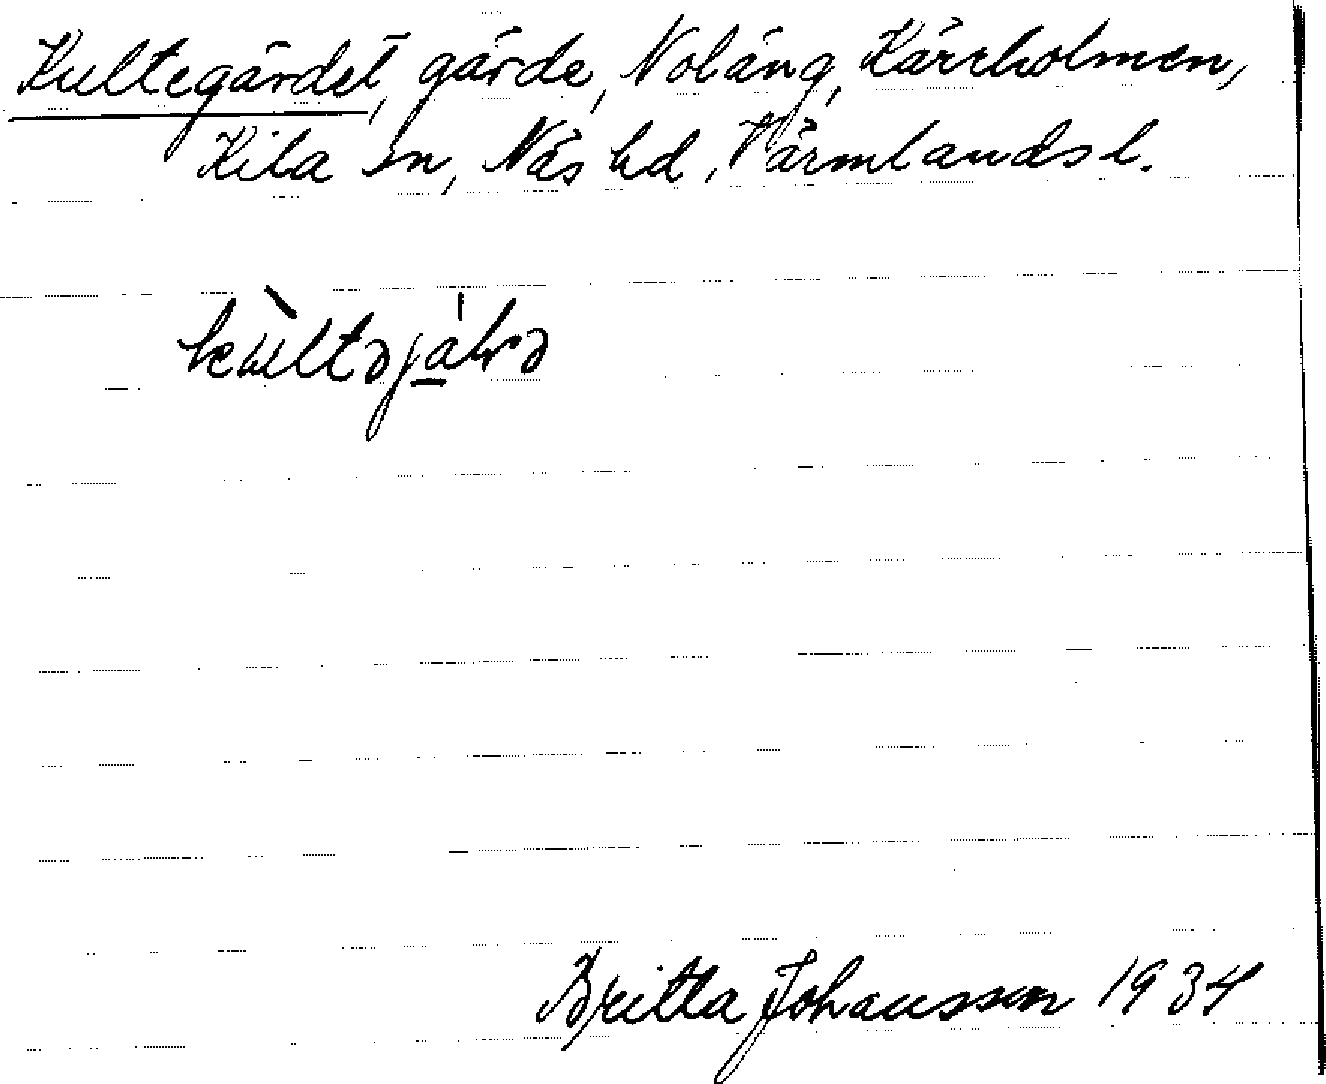 Kultegärdet, gärde, Noläng, Kärrholmen,
Kila sn, Näs hd, Värmlands l.
Britta Johansson 1934